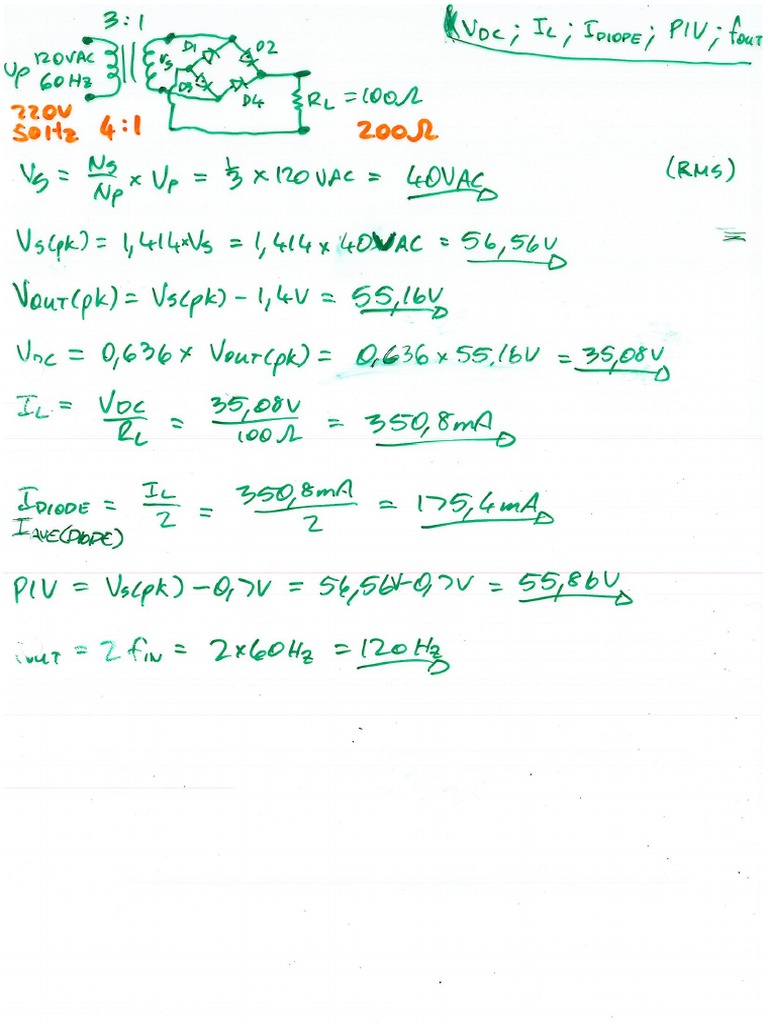 3:1
VDC ; IL ; IDIODE ; PIV ; fOUT
VP 120VAC 60Hz
VS
D1
D2
D3
D4
RL = 100Ω
220V
50Hz 4:1
200Ω
VS = NS/NP × VP = 1/3 × 120VAC = 40VAC (RMS)
VS(pk) = 1,414×VS = 1,414 × 40VAC = 56,56V
VOUT(pk) = VS(pk) - 1,4V = 55,16V
VDC = 0,636 × VOUT(pk) = 0,636 × 55,16V = 35,08V
IL = VDC/RL = 35,08V/100Ω = 350,8mA
IDIODE = IL/2 = 350,8mA/2 = 175,4mA
IAVE(DIODE)
PIV = VS(pk) - 0,7V = 56,56V-0,7V = 55,86V
fOUT = 2 fIN = 2×60Hz = 120Hz